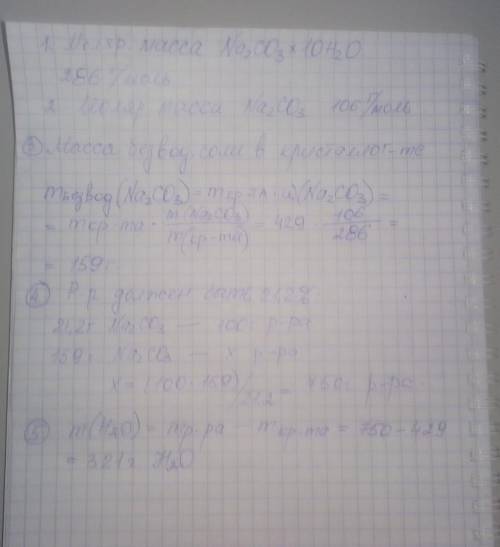 1. масса Na₂CO₃ × 10H₂O
286 г/моль
2. Моляр масса Na₂CO₃ 106 г/моль
③ Масса безвод. соли в кристаллог-те
m безвод (Na₂CO₃) = m кр-та · ω(Na₂CO₃) =
= m кр-та · m(Na₂CO₃)/m(кр-та) = 429 · 106/286 =
= 159 г.
④ Р-р должен быть 21,2%
21,2 г Na₂CO₃ — 100 г р-ра
159 г Na₂CO₃ — x р-ра
x = (100 · 159)/21,2 = 750 г р-ра
⑤ m(H₂O) = m р-ра − m кр-та = 750 − 429
= 321 г H₂O